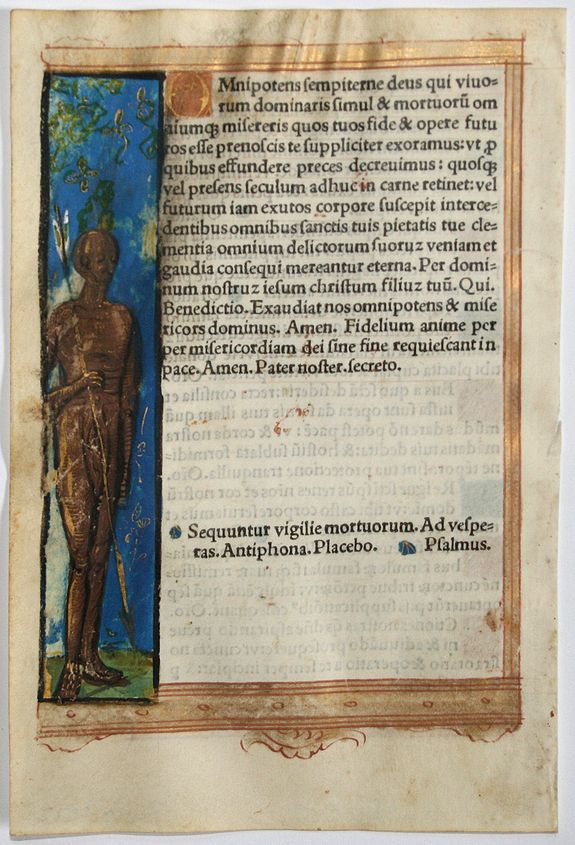 OMnipotens sempiterne deus qui viuo-
rum dominaris simul & mortuorū om
niumq; misereris quos tuos fide & opere futu
ros esse prenoscis te suppliciter exoramus: vt ꝓ
quibus effundere preces decreuimus: quosq;
vel presens seculum adhuc in carne retinet: vel
futurum iam exutos corpore suscepit interce-
dentibus omnibus sanctis tuis pietatis tue cle-
mentia omnium delictorum suoruz veniam et
gaudia consequi mereantur eterna. Per domi-
num nostruz iesum christum filiuz tuū. Qui.
Benedictio. Exaudiat nos omnipotens & mise
ricors dominus. Amen. Fidelium anime per
per misericordiam dei sine fine requiescant in
pace. Amen. Pater noster. secreto.
Sequuntur vigilie mortuorum. Ad vespe-
ras. Antiphona. Placebo. Psalmus.